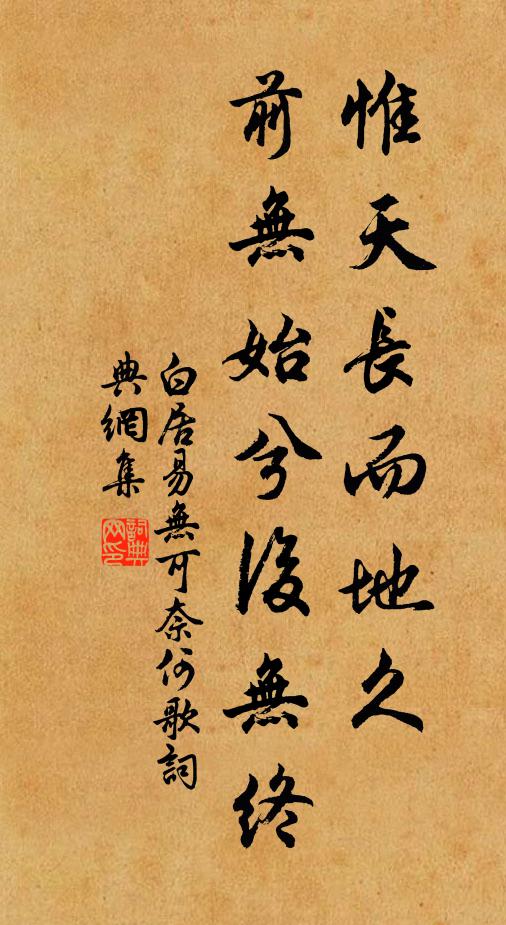 惟天長而地久
前無始兮後無終
白居易無可奈何歌詞
典網集
詞典网印